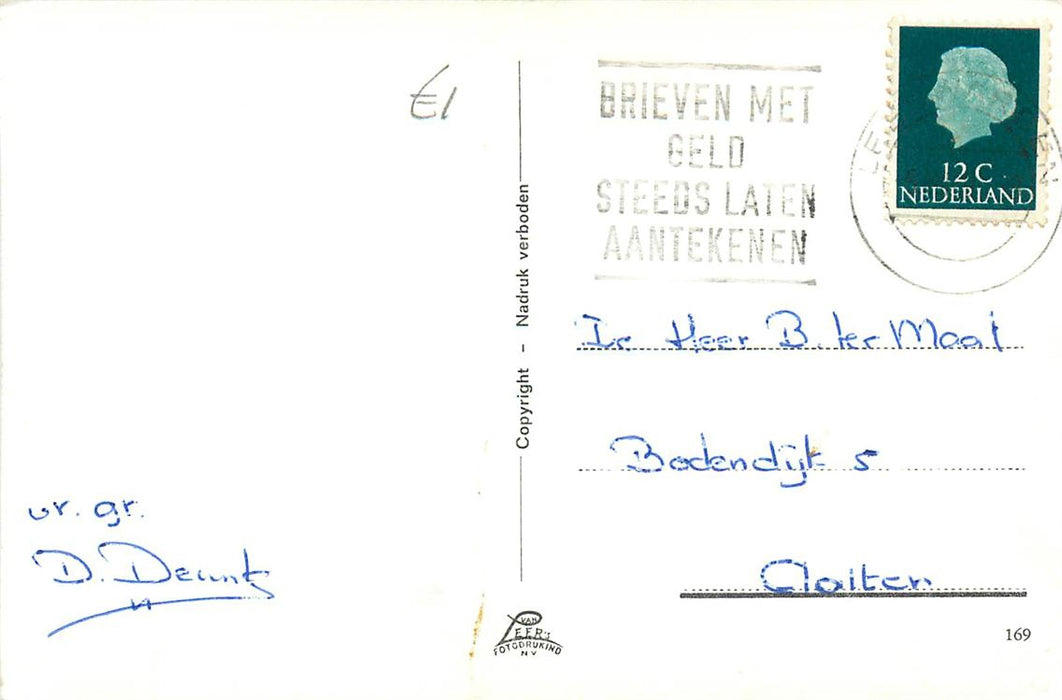 £1
BRIEVEN MET
GELD
STEEDS LATEN
AANTEKENEN
12 C
NEDERLAND
Copyright - Nadruk verboden
De Heer B. ter Maat
Bodendijk 5
vr. gr.
D.
VAN
LEER'S
FOTODRUKIND
NV
169